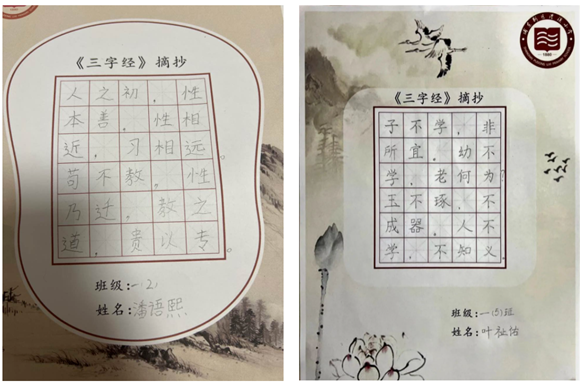 《三字经》摘抄
人之初，性
本善，性相
近，习相远。
苟不教，性
乃迁，教之
道，贵以专。
班级：一(2)
姓名：潘语熙
《三字经》摘抄
子不学，非
所宜。幼不
学，老何为？
玉不琢，不
成器。人不
学，不知义。
班级：一(5)班
姓名：叶祉怡